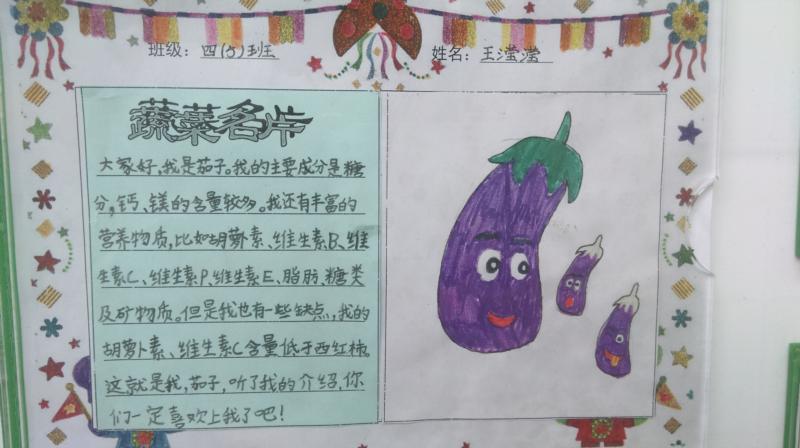 班级：四(5)班
姓名：王滢滢
蔬菜名片
大家好，我是茄子。我的主要成分是糖
分，钙、镁的含量较多。我还有丰富的
营养物质，比如胡萝素、维生素B、维
生素C、维生素P、维生素E、脂肪、糖类
及矿物质。但是我也有一些缺点，我的
胡萝卜素、维生素C含量低于西红柿。
这就是我，茄子，听了我的介绍，你
们一定喜欢上我了吧！